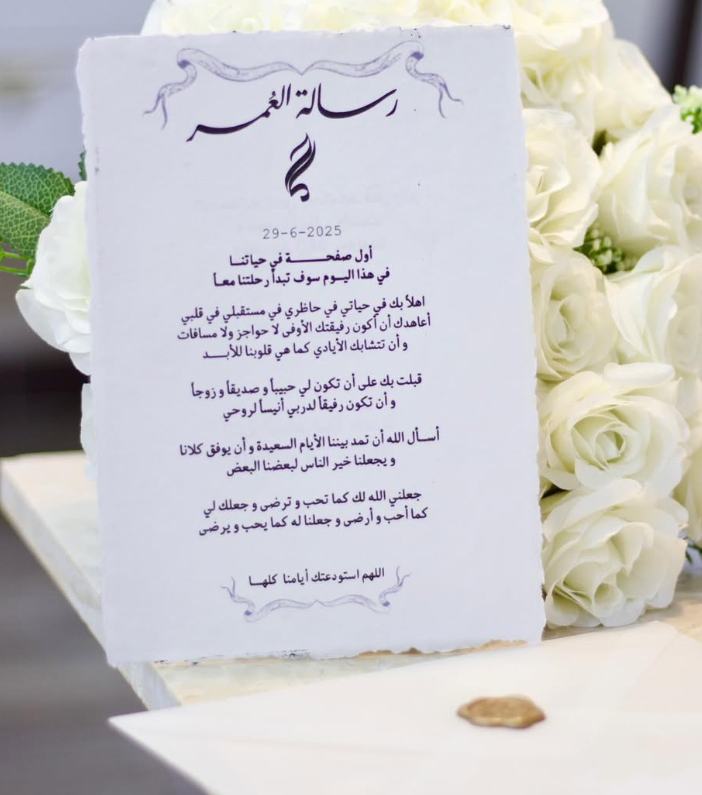 رسالة العُمر
29-6-2025
أول صفحـــــــة في حياتنـا
في هذا اليـــوم سوف تبدأ رحلتنا معـاً
اهلاً بك في حياتي في حاظري في مستقبلي في قلبي
أعاهدك أن أكون رفيقتك الأوفى لا حواجز ولا مسافات
و أن تتشابك الأيادي كما هي قلوبنا للأبـــد
قبلت بك على أن تكون لي حبيباً و صديقاً و زوجاً
و أن تكون رفيقاً لدربي أنيساً لروحي
أســأل الله أن تمد بيننا الأيام السعيدة و أن يوفق كلانا
و يجعلنا خير الناس لبعضنا البعض
جعلني الله لك كما تحب و ترضى و جعلك لي
كما أحب و أرضى و جعلنا له كما يحب و يرضى
اللهم استودعتك أيامنا كلهـا